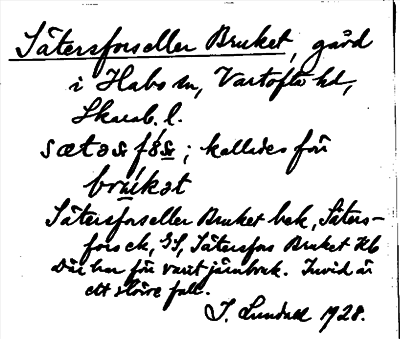 Sätersfors eller Bruket, gård
i Habo sn, Vartofta hd,
Skarab. l.
sætəʂfɔ́ʂ; kallades förr
brúkət
Sätersfors eller Bruket bek, Säters-
fors ek, GS, Sätersfors Bruket Hb
Där har förr varit järnbruk. Invid är
ett större fall.
J. Lundahl 1928.